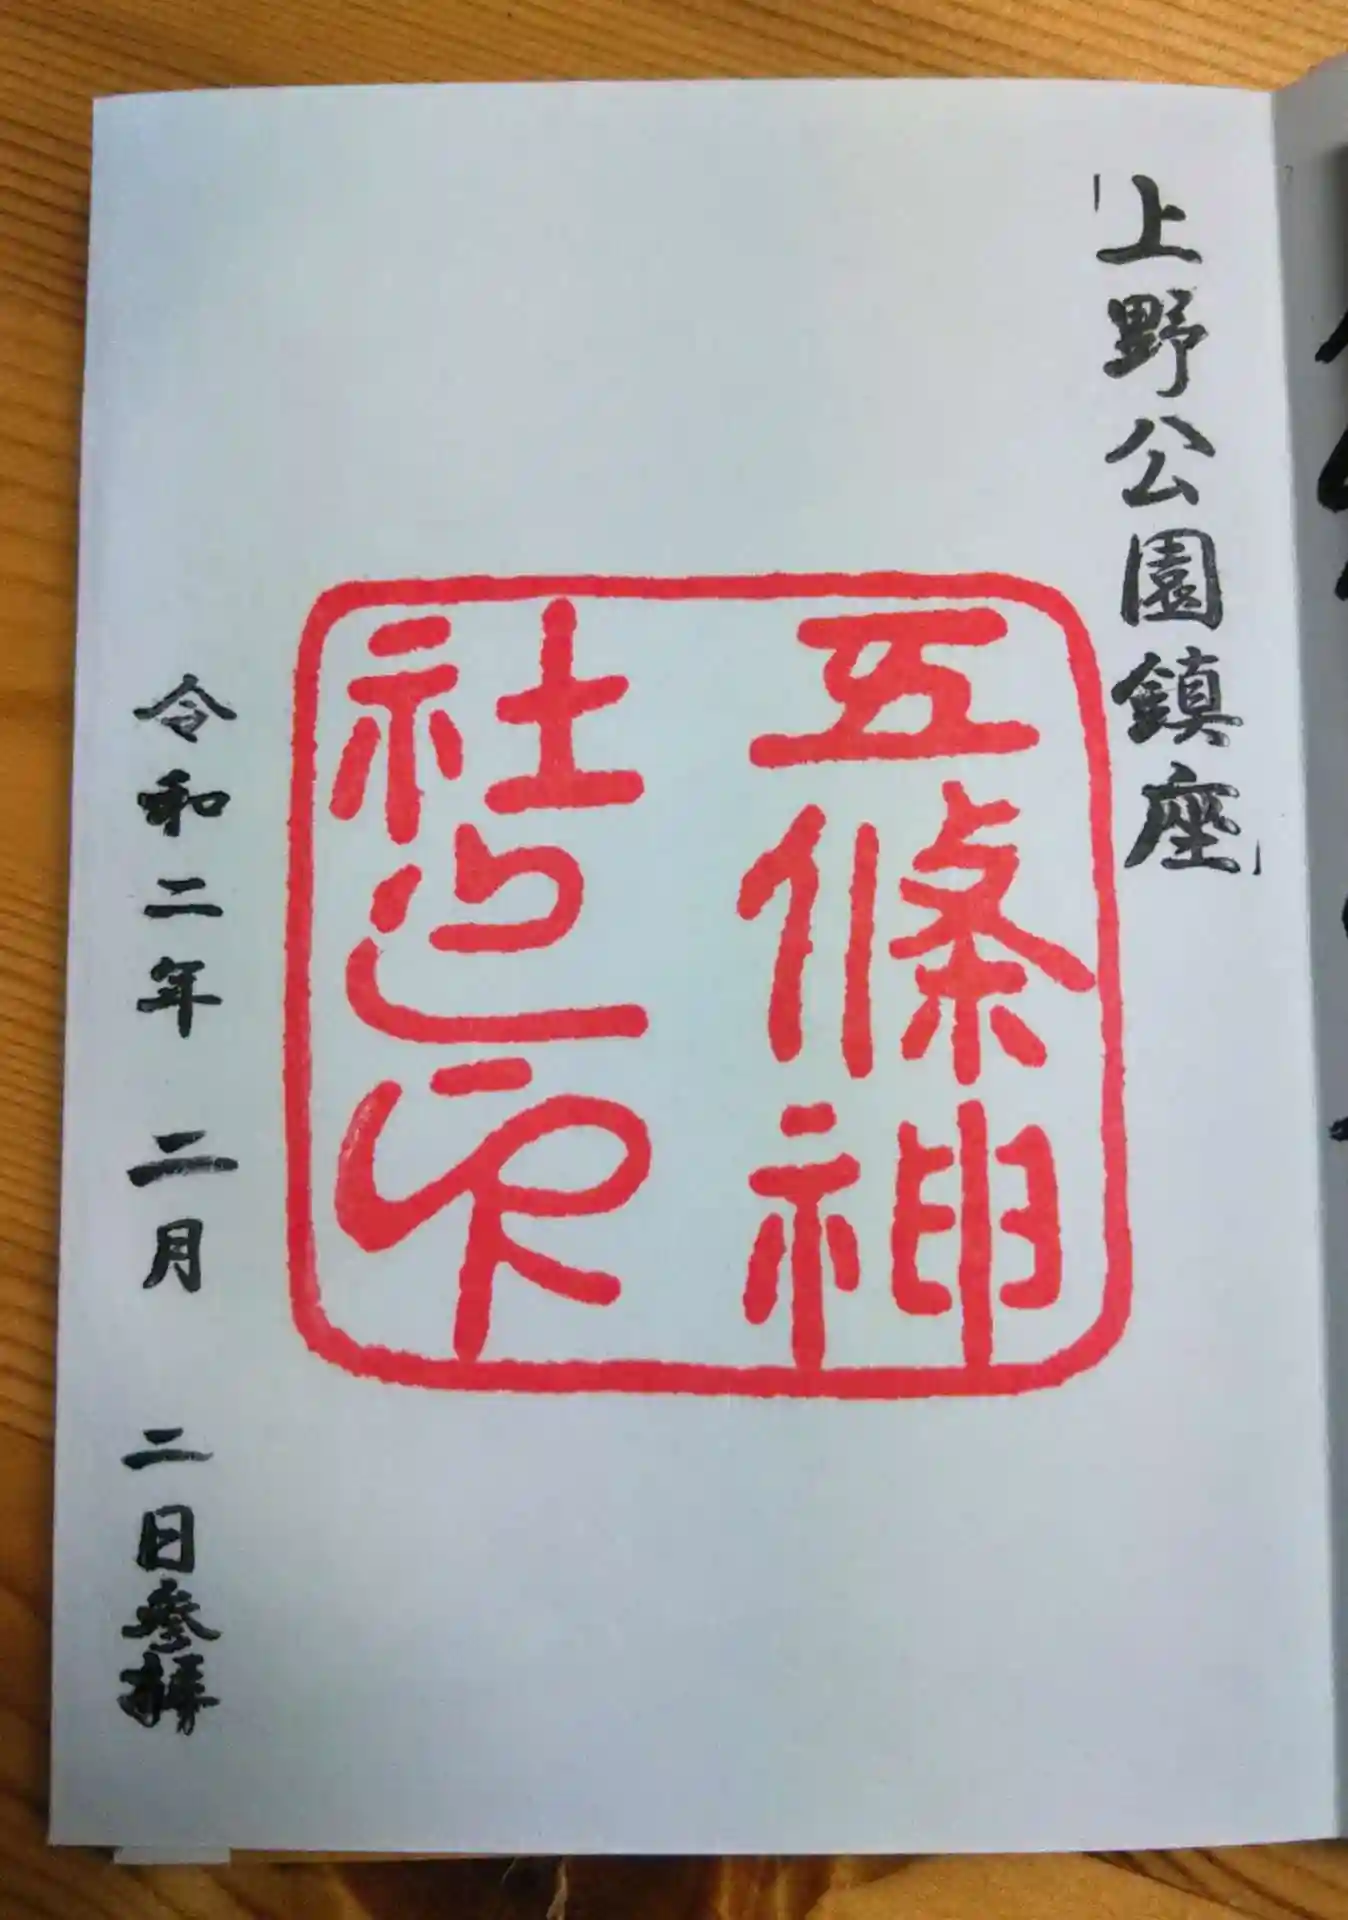 「上野公園鎮座」
五條神
社之印
令和二年 二月 二日参拝